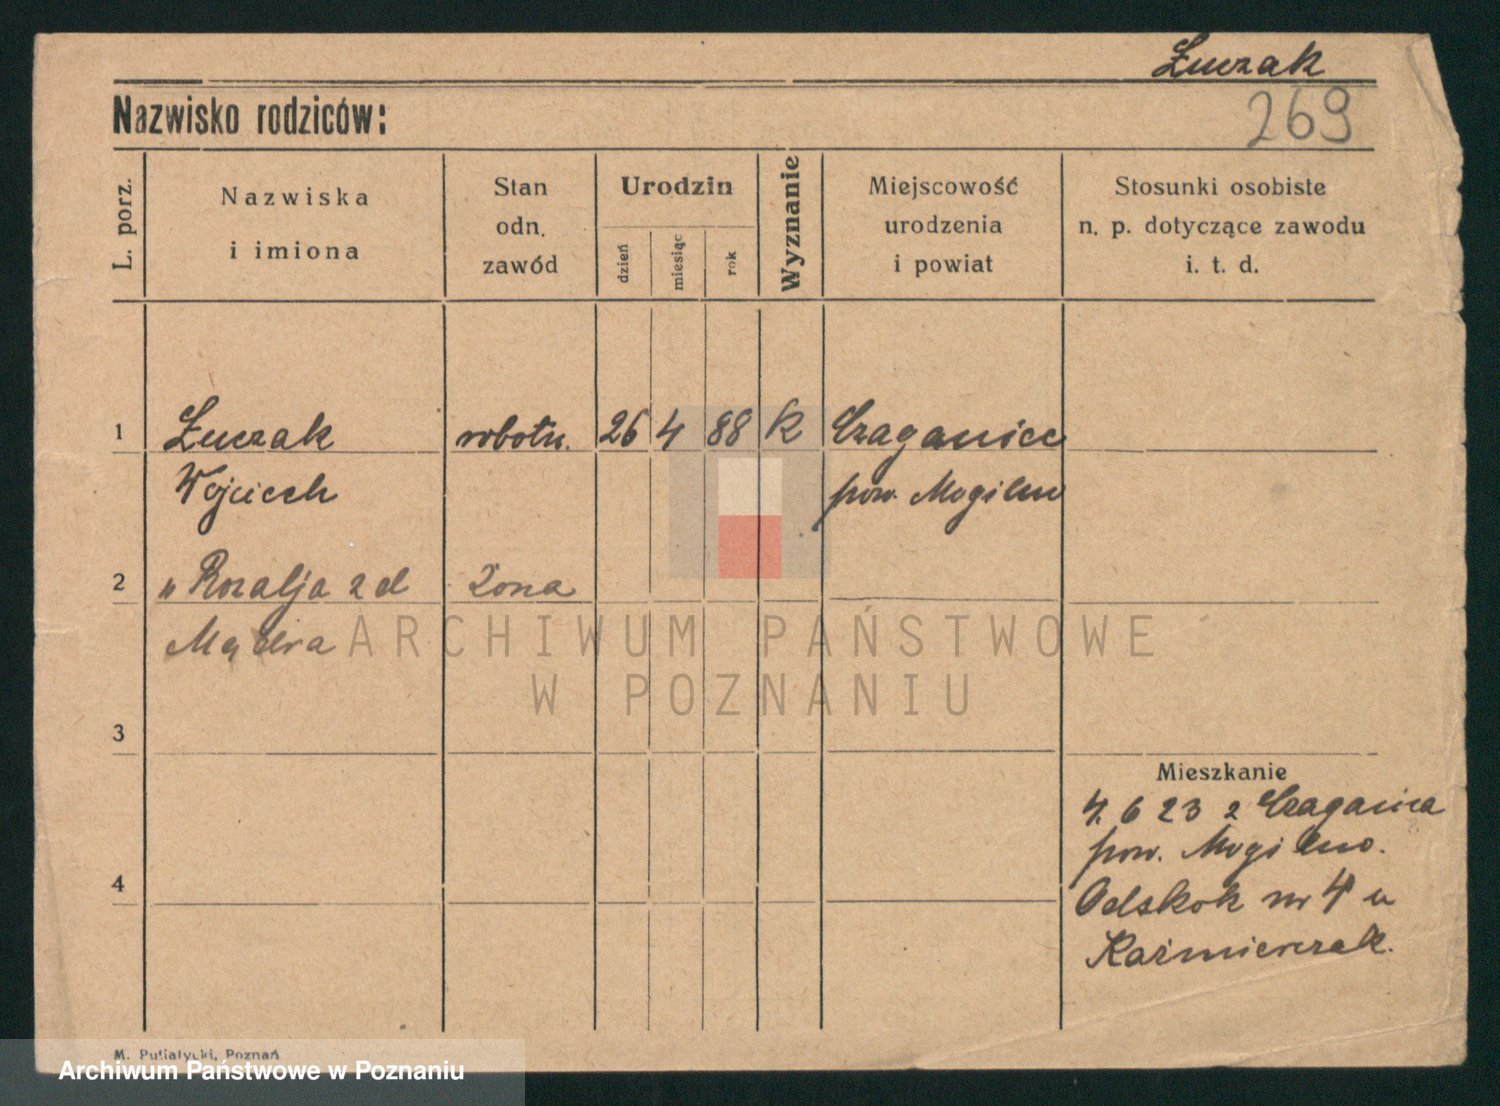 Łuczak
269
Nazwisko rodziców:
L. porz.
Nazwiska
i imiona
Stan
odn.
zawód
Urodzin
dzień
miesiąc
rok
Wyznanie
Miejscowość
urodzenia
i powiat
Stosunki osobiste
n. p. dotyczące zawodu
i. t. d.
1 Łuczak robotn. 26 4 88 k Czaganiec
Wojciech pow. Mogilno
2 " Rozalja z d Żona
ARCHIWUM PAŃSTWOWE
W POZNANIU
3
Mieszkanie
4. 6 23 z
pow. Mogilno.
4
Odskok nr 4 u
Kaźmierczak.
M. Putiatycki, Poznań
Archiwum Państwowe w Poznaniu